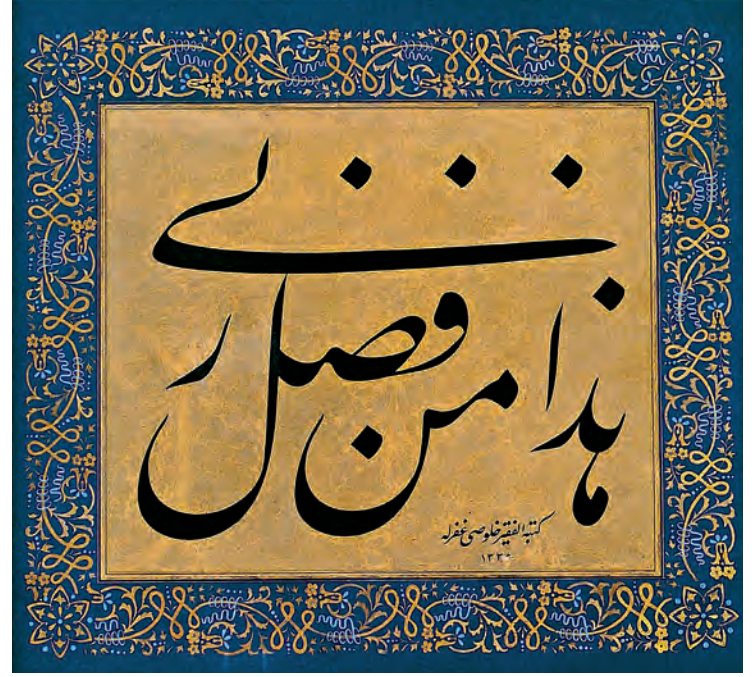 هذا من فضل ربي
كتبه الفقير خلوصي غفرله